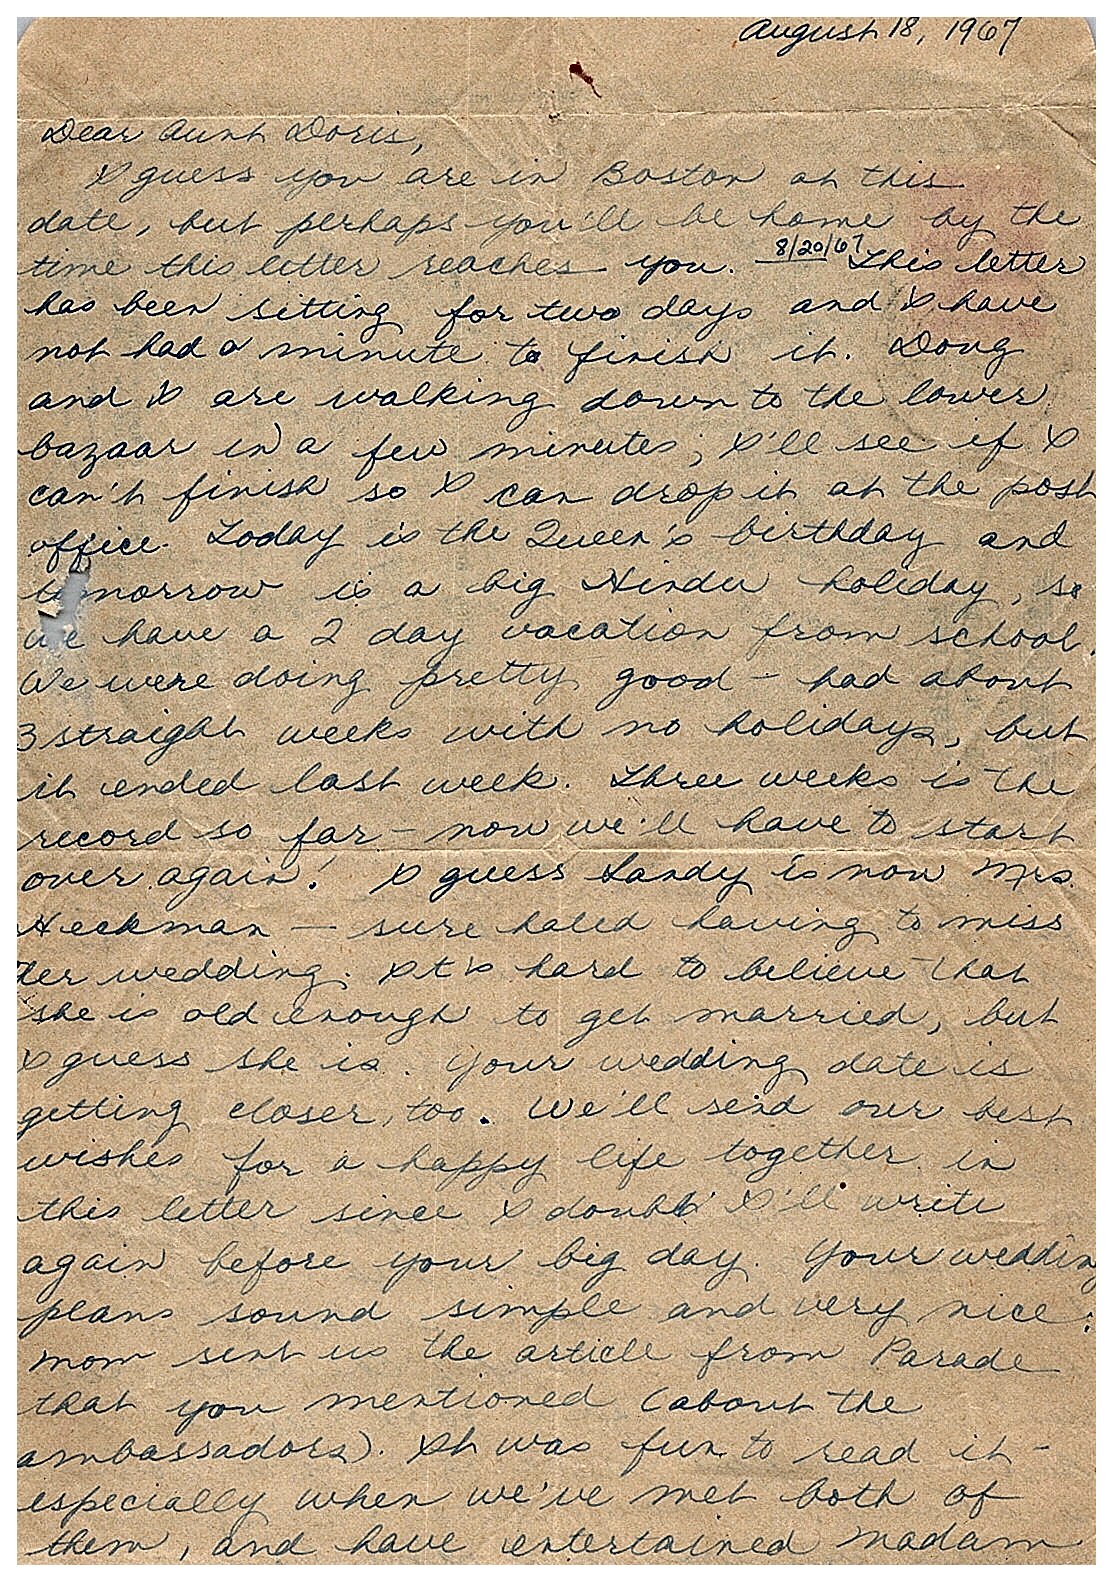 August 18, 1967
Dear Aunt Doris,
I guess you are in Boston at this
date, but perhaps you'll be home by the
time this letter reaches you. 8/20/67 This letter
has been sitting for two days and I have
not had a minute to finish it. Doug
and I are walking down to the lower
bazaar in a few minutes; I'll see if I
can't finish so I can drop it at the post
office. Today is the Queen's birthday and
tomorrow is a big Hindu holiday, so
we have a 2 day vacation from school.
We were doing pretty good - had about
3 straight weeks with no holidays, but
it ended last week. Three weeks is the
record so far - now we'll have to start
over again! I guess Sandy is now Mrs.
Heckman - sure hated having to miss
her wedding. It's hard to believe that
she is old enough to get married, but
I guess she is. Your wedding date is
getting closer, too. We'll send our best
wishes for a happy life together in
this letter since I doubt I'll write
again before your big day. Your wedding
plans sound simple and very nice.
Mom sent us the article from Parade
that you mentioned (about the
ambassadors). It was fun to read it -
especially when we've met both of
them, and have entertained Madam